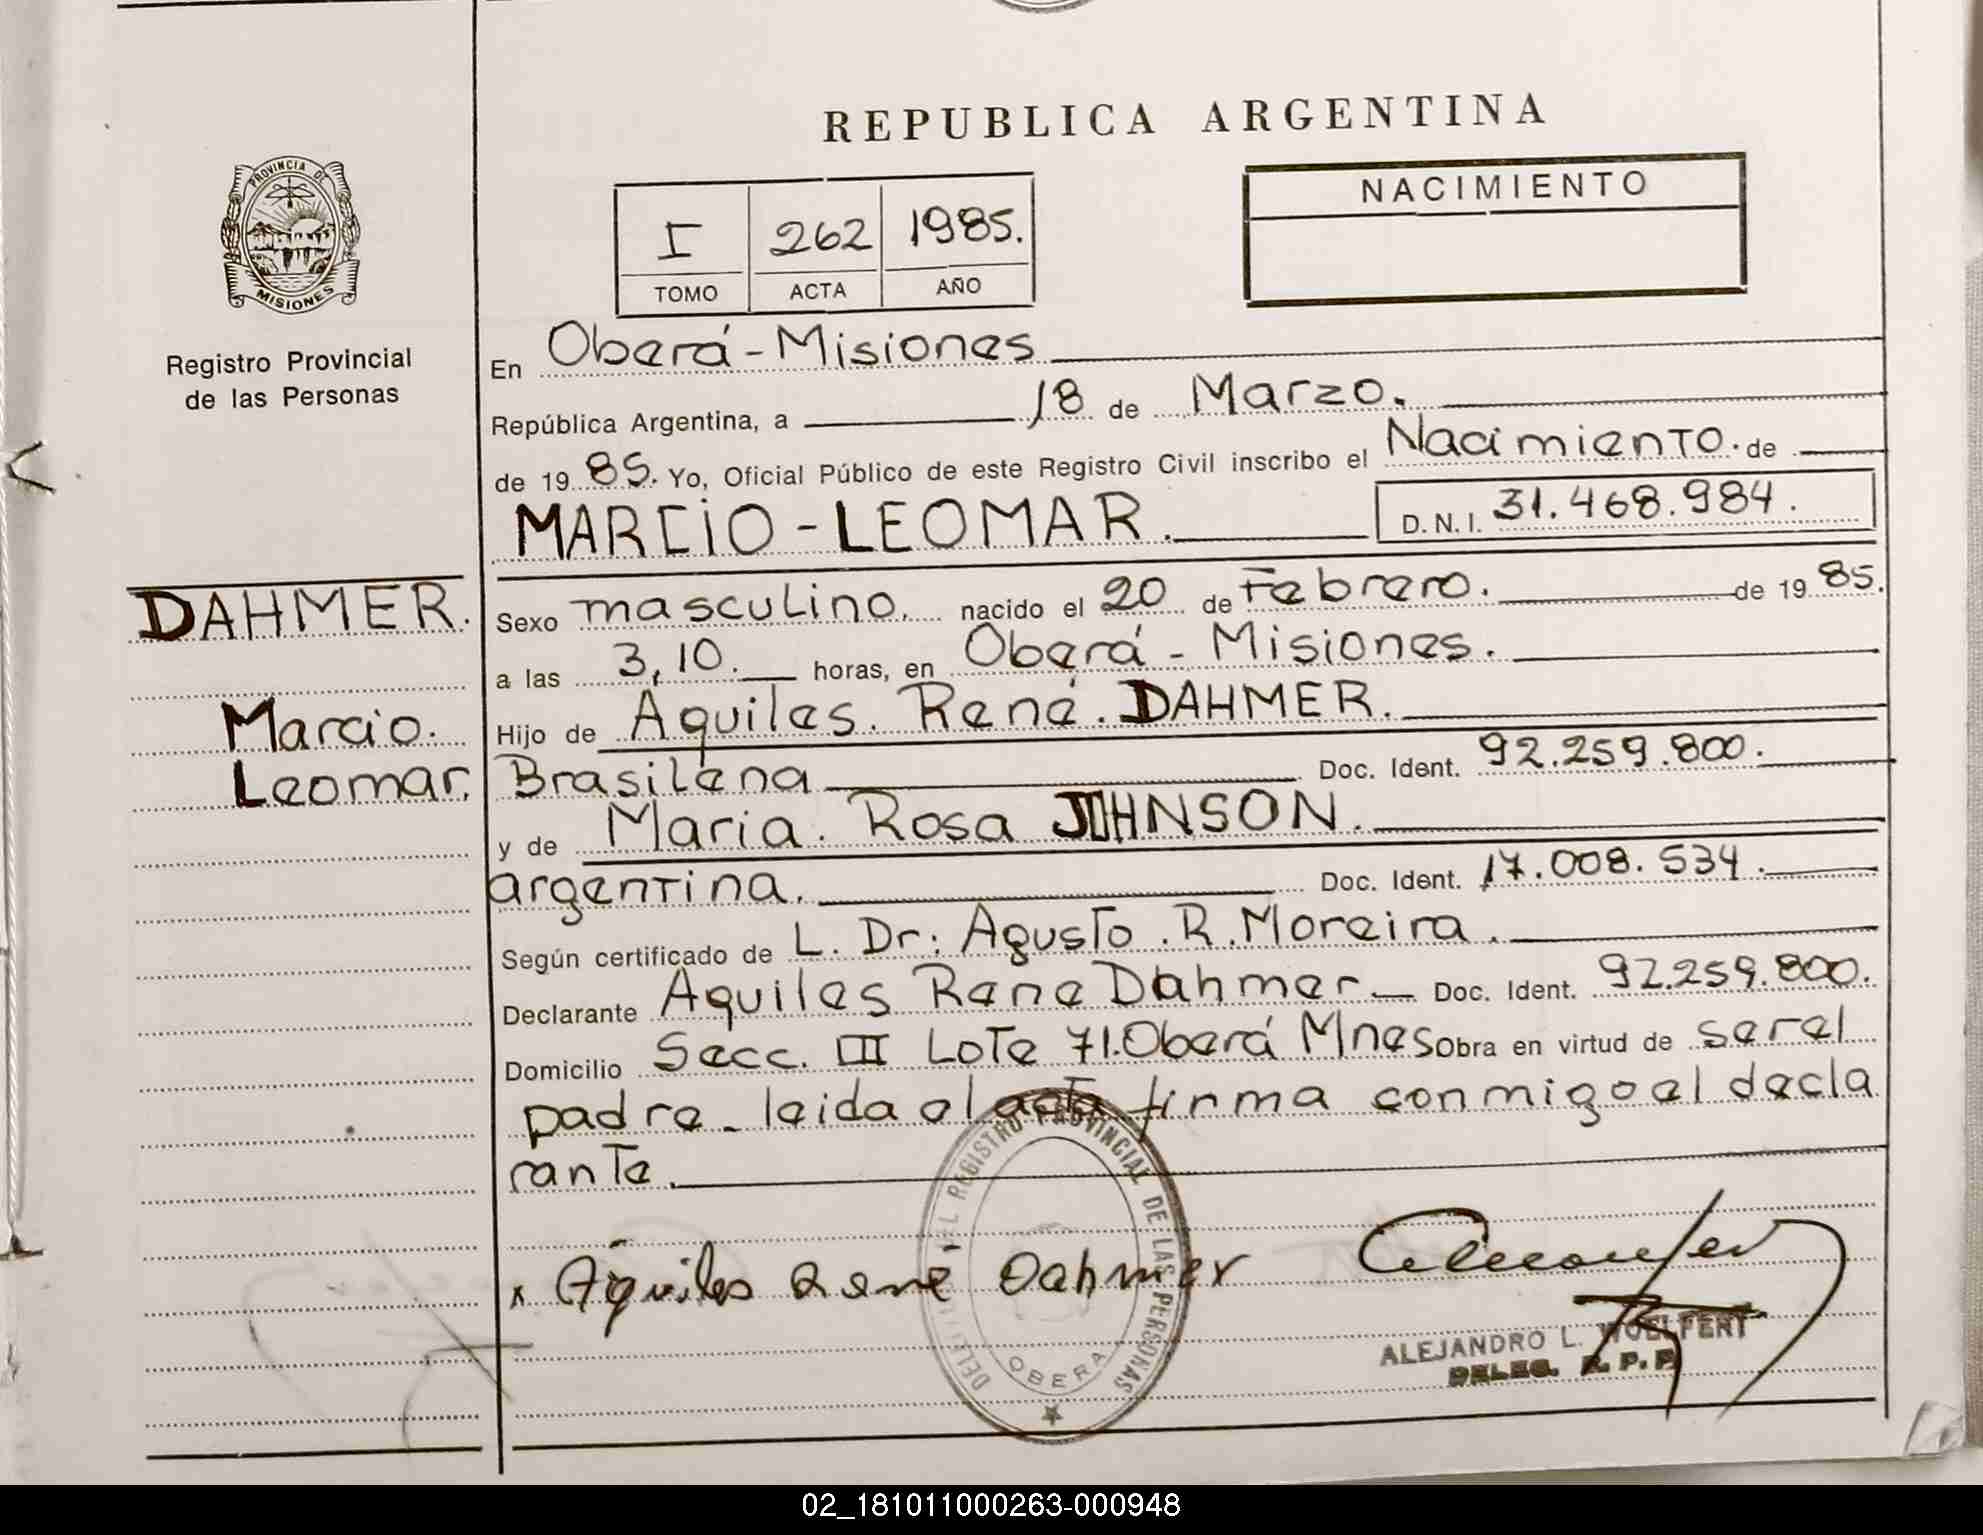 REPUBLICA ARGENTINA
PROVINCIA DE MISIONES
Registro Provincial
de las Personas
I 262 1985.
TOMO ACTA AÑO
NACIMIENTO
En Oberá - Misiones
República Argentina, a 18 de Marzo.
de 19 85. Yo, Oficial Público de este Registro Civil inscribo el Nacimiento. de
MARCIO - LEOMAR. D.N.I. 31.468.984.
DAHMER.
Marcio.
Leomar.
Sexo masculino. nacido el 20 de Febrero. de 19 85.
a las 3,10. horas, en Oberá - Misiones.
Hijo de Aquiles. René. DAHMER.
Brasilena Doc. Ident. 92.259.800.
y de Maria. Rosa JOHNSON.
argentina. Doc. Ident. 17.008.534.
Según certificado de L. Dr: Agusto. R. Moreira.
Declarante Aquiles Rene Dahmer Doc. Ident. 92.259.800.
Domicilio Secc. III Lote 71. Oberá Mnes Obra en virtud de ser el
padre - leida el acta firma conmigo el decla
rante.
x Aquiles René Dahmer
REGISTRO PROVINCIAL DE LAS PERSONAS
OBERA
ALEJANDRO L. WOELFERT
DELEG. R.P.P.
02_181011000263-000948